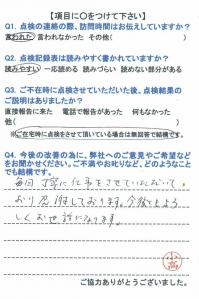 【項目に○をつけて下さい】
Q1. 点検の連絡の際、訪問時間はお伝えしていますか?
言われた 言われなかった その他(            )
Q2. 点検記録表は読みやすく書かれていますか?
読みやすい 一応読める 読みづらい 読めない部分がある
Q3. ご不在時に点検させていただいた後、点検結果の
ご説明はありましたか?
直接報告に来た 電話で報告があった 何もなかった
他(            )
※ご在宅時に点検をさせて頂いている場合は無回答で結構です。
Q4. 今後の改善の為に、弊社へのご意見やご希望など
をお聞かせください。ご不満やお叱りなど、どのようなこと
でも結構です。
毎回丁寧に仕事をさせていただいて
おり感謝しております。今後ともよろ
しくお世話になります。
小高
ご協力ありがとうございました。